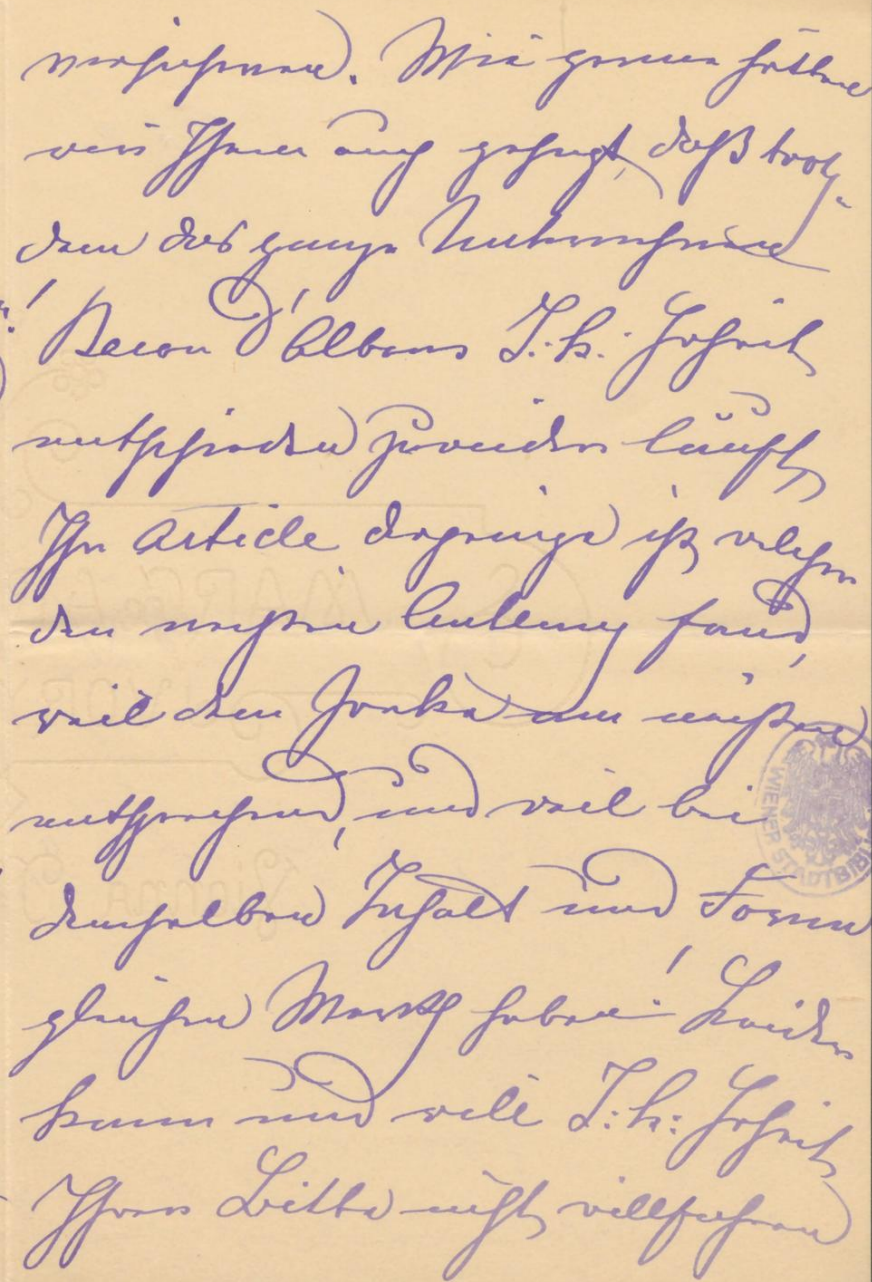 versichern. Wie gerne hätte
ich Ihnen auch gesagt, daß trotz-
dem das ganze Unternehmen
Baron d'Albons I.: k.: Hoheit
entschieden zuwider läuft,
Ihr Article derjenige ist, welcher
den meisten Anklang fand,
weil dem Zwecke am meisten
entsprechend, und weil bei
demselben Inhalt und Form
gleichen Werth haben! Leider
kann und will I.: k.: Hoheit
Ihrer Bitte nicht willfahren
WIENER STADTBIBL